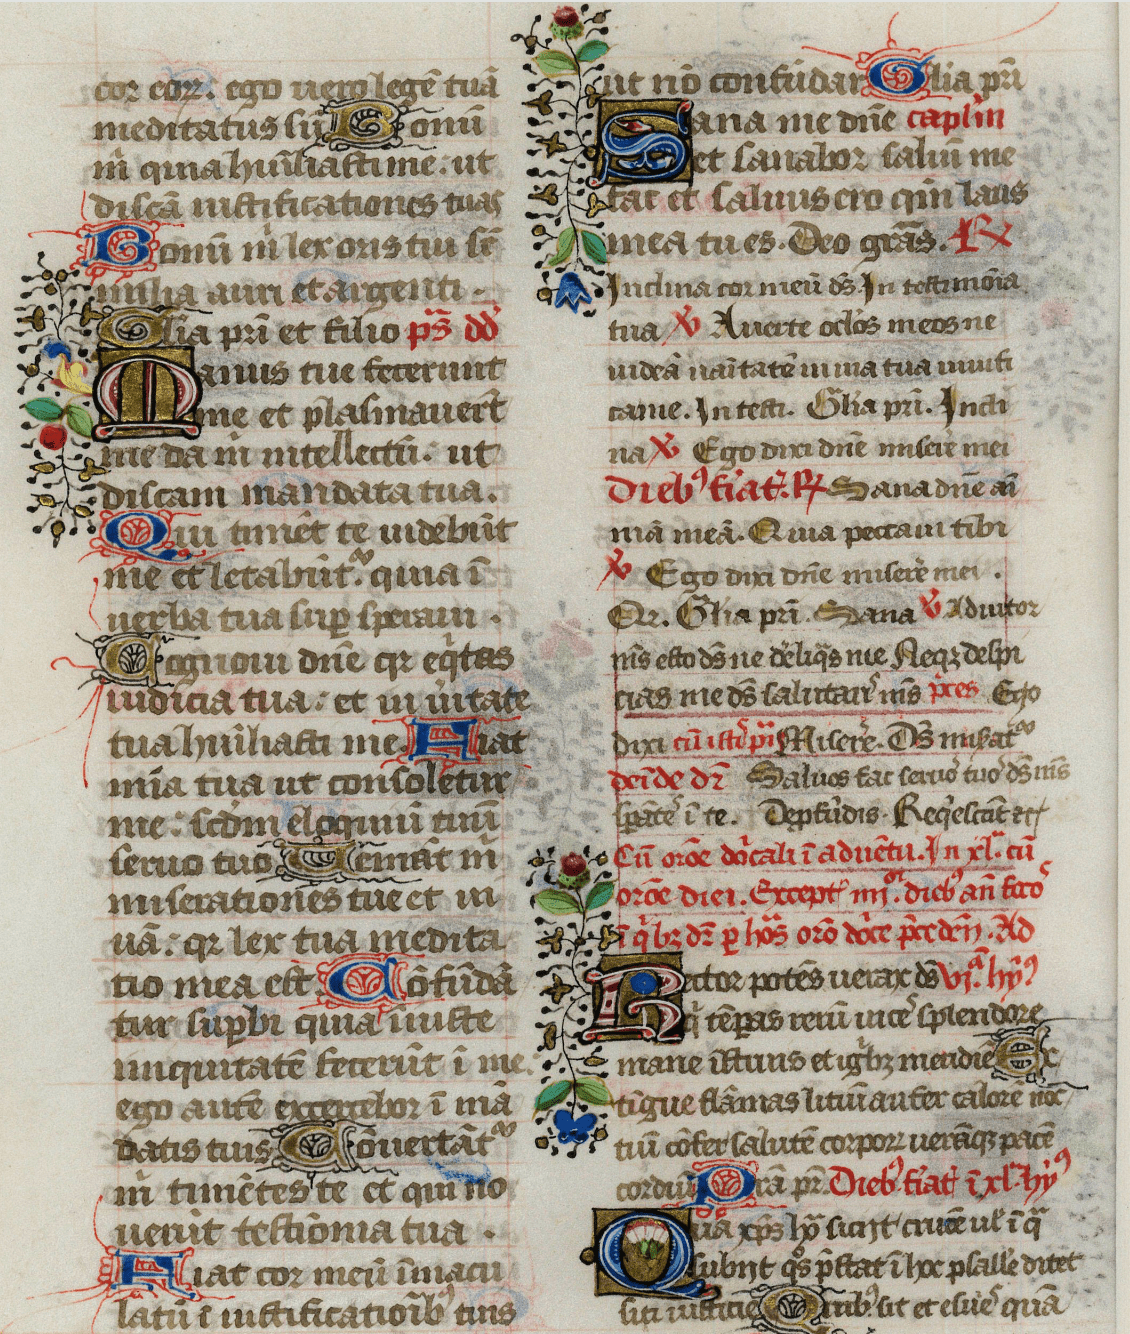 cor eorū ego uero legē tuā
meditatus sū Bonū
m̄ quia hūiliasti me : ut
discā iustificationes tuas
Bonū m̄ lex oris tui sr̄
milia auri et argenti .
Glia pr̄i et filio ps̄ dd̄
Manus tue fecerunt
me et plasmauerūt
me da m̄ intellectū . ut
discam mandata tua .
Qui timēt te uidebūt
me et letabūt̄ . quia ī
uerba tua sup̄ speraui .
Cognoui dn̄e qr eq̄tas
iudicia tua : et in ūitate
tua hūiliasti me . Fiat
mīa tua ut consoletur
me : scdm̄ eloquiū tuū
seruo tuo Veniāt m̄
miserationes tue et ui
uā : qr lex tua medita
tio mea est . Cōfūdā
tur sup̄bi quia iniuste
iniquitatē fecerūt ī me :
ego autē exercebor ī mā
datis tuis Cōuertāt̄
m̄ timētes te et qui no
uerūt testīonia tua .
Fiat cor meū īmacu
latū ī iustificatiōib⁹ tuis
ut nō confūdar Glia pr̄i
Sana me dn̄e capl̄m
et sanabor saluū me
fac et saluus ero qm̄ laus
mea tu es . Deo grās . ℟
Inclina cor meū ds̄ In testimōia
tua ℣ Auerte oclōs meos ne
uideā uāitatē in uia tua uiuifi
ca me . In testi . Glīa pr̄i . Incli
na ℣ Ego dixi dn̄e misere mei
Dieb⁹ fiat̄ . ℟ Sana dn̄e aī
mā meā . Quia peccaui tibi
℣ Ego dixi dn̄e miserē mei .
Qr . Glīa pr̄i . Sana ℣ Adiutor
m̄s esto ds̄ ne dēliq̄s me Neqꝫ despi
cias me ds̄ salutar̄ m̄s p̄ces Ego
dixi Miserē . Ds̄ misāt̄
deīde dr̄ Saluos fac seruos tuos ds̄ m̄s
sp̄ātēs ī te . De pfūdis . Reqīescāt etc̄
Cū orōe dōīcali ī aduētu . In xl̄ . cū
orōe diei . Except̄ iiij . dieb⁹ an̄
ī q̄bꝫ dr̄ p̄ orō p̄cedēn̄ . Ad
Rector potēs uerax ds̄ vj . hȳ⁹
q̄ tēpas rerū uicēs splendore
mane īstruis et igībꝫ meridiē Ex
tīgue flāmas litiū aufer calorē nox
iū cōfer salutē corporꝫ uerāqꝫ pacē
cordiū Prā pr̄ . Dieb⁹ fiat̄ ī xl̄ . hȳ⁹
Qua xp̄s hōra sitijt crucē ul̄ ī q̄
subijt q̄s p̄stat ī hac psallē ditet
siti iusticie Quib⁹ sit et esuēs quā